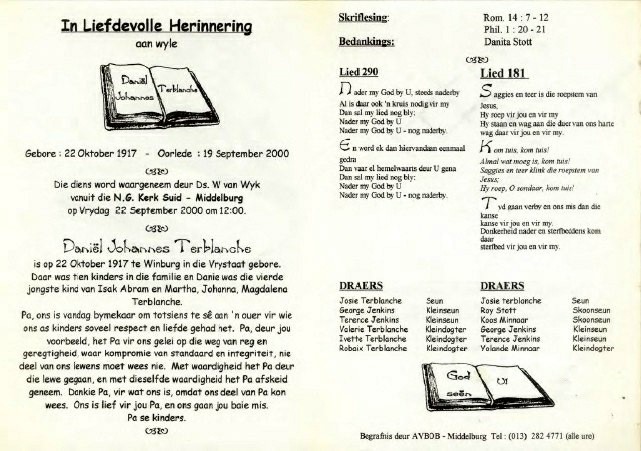 In Liefdevolle Herinnering
aan wyle
Daniël
Johannes
Terblanche
Gebore : 22 Oktober 1917 - Oorlede : 19 September 2000
Die diens word waargeneem deur Ds. W van Wyk
vanuit die N.G. Kerk Suid - Middelburg
op Vrydag 22 September 2000 om 12:00.
Daniël Johannes Terblanche
is op 22 Oktober 1917 te Winburg in die Vrystaat gebore.
Daar was tien kinders in die familie en Danie was die vierde
jongste kind van Isak Abram en Martha, Johanna, Magdalena
Terblanche.
Pa, ons is vandag bymekaar om totsiens te sê aan 'n ouer vir wie
ons as kinders soveel respect en liefde gehad het. Pa, deur jou
voorbeeld, het Pa vir ons gelei op die weg van reg en
geregtigheid. waar kompromie van standaard en integriteit, nie
deel van ons lewens moet wees nie. Met waardigheid het Pa deur
die lewe gegaan, en met dieselfde waardigheid het Pa afskeid
geneem. Dankie Pa, vir wat ons is, omdat ons deel van Pa kon
wees. Ons is lief vir jou Pa, en ons gaan jou baie mis.
Pa se kinders.
Skriflesing: Rom. 14 : 7 - 12
Phil. 1 : 20 - 21
Bedankings: Danita Stott
Lied 290
Nader my God by U, steeds naderby
Al is daar ook 'n kruis nodig vir my
Dan sal my lied nog bly:
Nader my God by U
Nader my God by U - nog naderby.
En word ek dan hiervandaan eenmaal
gedra
Dan vaar el hemelwaarts deur U gena
Dan sal my lied nog bly:
Nader my God by U
Nader my God by U - nog naderby.
Lied 181
Saggies en teer is die roepstem van
Jesus,
Hy roep vir jou en vir my
Hy staan en wag aan die duer van ons harte
wag daar vir jou en vir my.
Kom tuis, kom tuis!
Almal wat moeg is, kom tuis!
Saggies en teer klink die roepstem van
Jesus;
Hy roep, O sondaar, kom tuis!
Tyd gaan verby en ons mis dan die
kanse
kanse vir jou en vir my.
Donkerheid nader en sterfbeddens kom
daar
sterfbed vir jou en vir my.
DRAERS
Josie Terblanche Seun
George Jenkins Kleinseun
Terence Jenkins Kleinseun
Valerie Terblanche Kleindogter
Ivette Terblanche Kleindogter
Robaix Terblanche Kleindogter
DRAERS
Josie terblanche Seun
Roy Stott Skoonseun
Koos Minnaar Skoonseun
George Jenkins Kleinseun
Terence Jenkins Kleinseun
Yolande Minnaar Kleindogter
God
seën
U!
Begrafnis deur AVBOB - Middelburg Tel : (013) 282 4771 (alle ure)